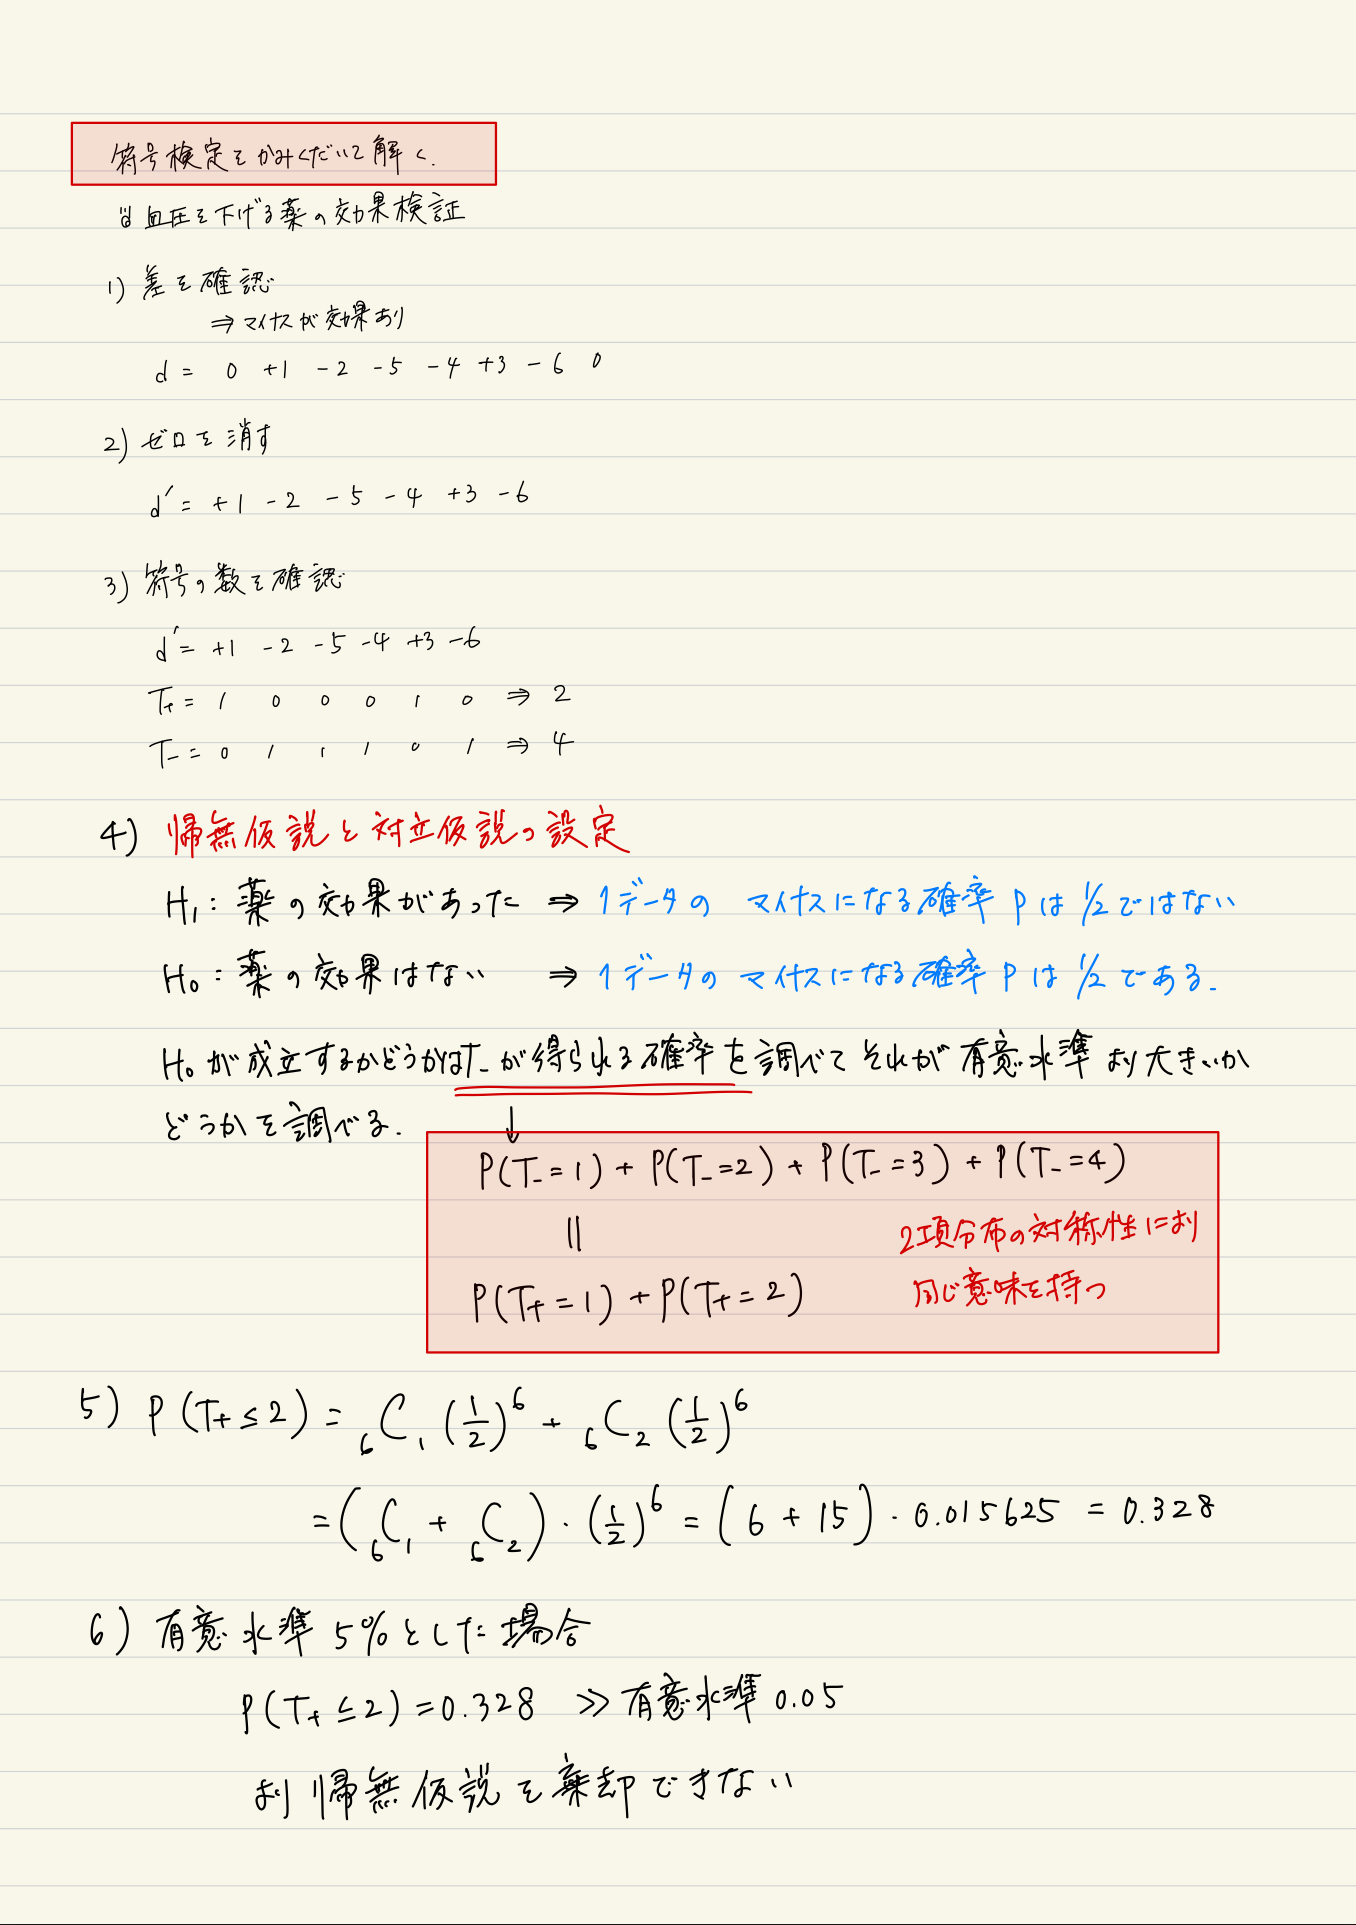 符号検定をかみくだいて解く.
例 血圧を下げる薬の効果検証
1) 差を確認
⇒ マイナスが効果あり
d = 0 +1 -2 -5 -4 +3 -6 0
2) ゼロを消す
d' = +1 -2 -5 -4 +3 -6
3) 符号の数を確認
d' = +1 -2 -5 -4 +3 -6
T+ = 1 0 0 0 1 0 ⇒ 2
T- = 0 1 1 1 0 1 ⇒ 4
4) 帰無仮説と対立仮説の設定
H₁: 薬の効果があった ⇒ 1データの マイナスになる確率 P は 1/2 ではない
H₀: 薬の効果はない ⇒ 1データの マイナスになる確率 P は 1/2 である.
H₀ が成立するかどうかはT- が得られる確率を調べて それが 有意水準 より大きいか
どうかを調べる.
↓
P(T-=1) + P(T-=2) + P(T-=3) + P(T-=4)
||
2項分布の対称性により
P(T+=1) + P(T+=2)
同じ意味を持つ
5) P(T+≤2) = ₆C₁ (1/2)⁶ + ₆C₂ (1/2)⁶
= (₆C₁ + ₆C₂) · (1/2)⁶ = (6 + 15) · 0.015625 = 0.328
6) 有意水準 5% とした場合
P(T+≤2) = 0.328 ≫ 有意水準 0.05
より 帰無仮説を棄却できない